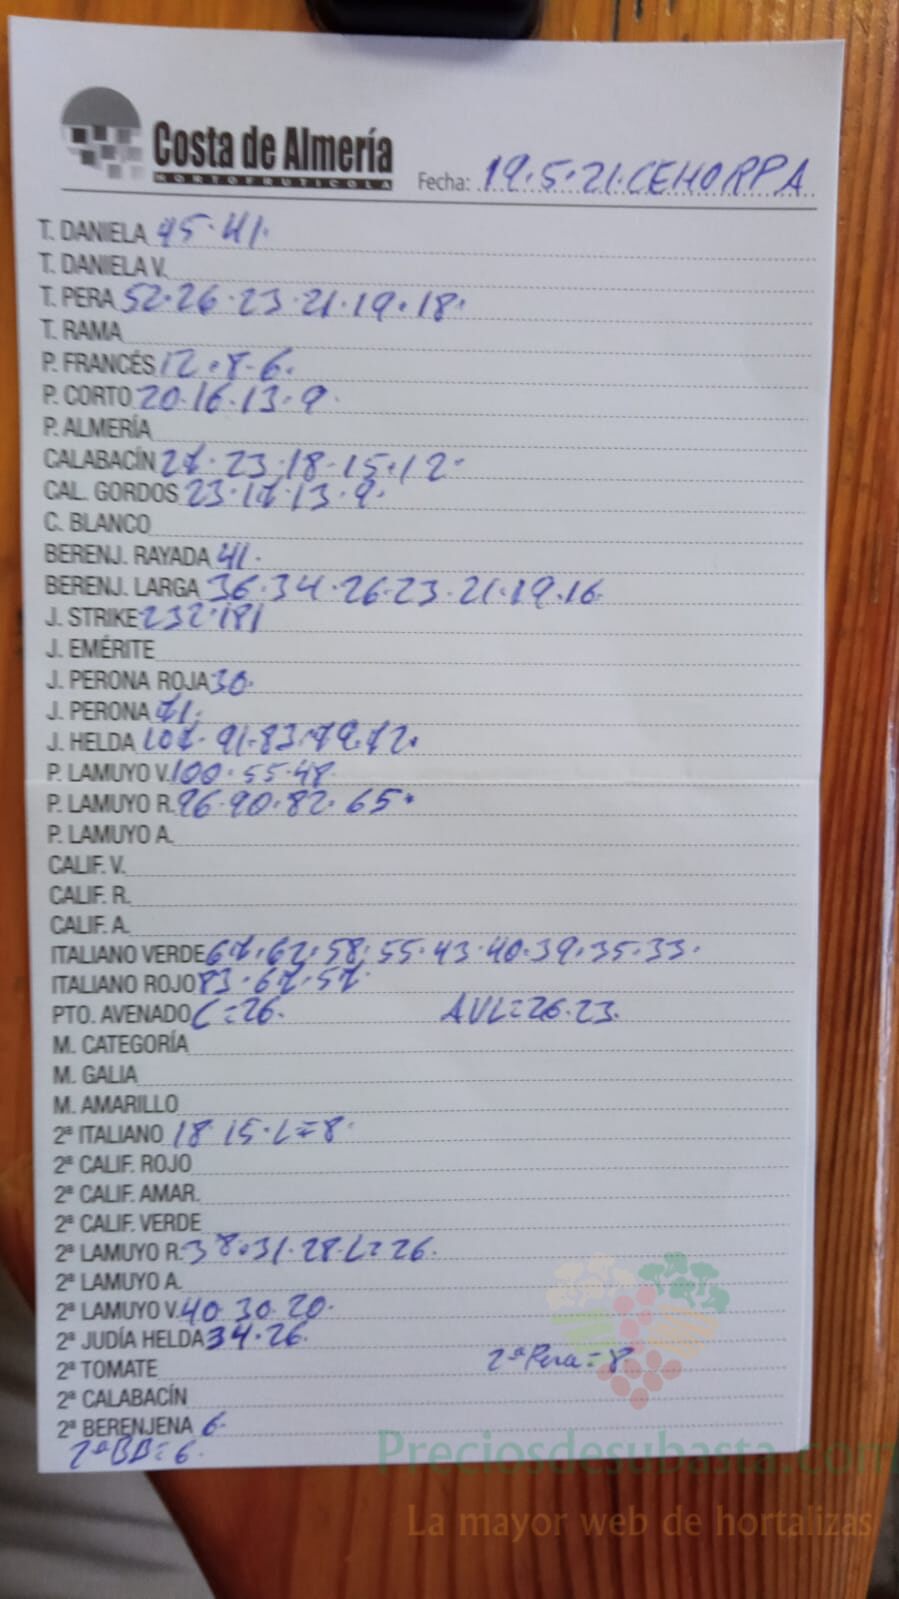 Costa de Almería
HORTOFRUTICOLA
Fecha: 19.5.21.CEHORPA
T. DANIELA 45.41.
T. DANIELA V.
T. PERA 52.26.23.21.19.18.
T. RAMA
P. FRANCÉS 12.8-6.
P. CORTO 20.16.13.9.
P. ALMERÍA
CALABACÍN 27.23.18-15.12-
CAL. GORDOS 23.17.13.9.
C. BLANCO
BERENJ. RAYADA 41.
BERENJ. LARGA 36.34.26.23.21.19.16.
J. STRIKE 232.181
J. EMÉRITE
J. PERONA ROJA 30.
J. PERONA 71.
J. HELDA 107.91.83.79.72.
P. LAMUYO V. 100.55.48.
P. LAMUYO R. 96.90.82.65.
P. LAMUYO A.
CALIF. V.
CALIF. R.
CALIF. A.
ITALIANO VERDE 67.62.58.55.43.40.39.35.33.
ITALIANO ROJO 83.67.57.
PTO. AVENADO C=26. AVL=26.23.
M. CATEGORÍA
M. GALIA
M. AMARILLO
2ª ITALIANO 18 15.L=8.
2ª CALIF. ROJO
2ª CALIF. AMAR.
2ª CALIF. VERDE
2ª LAMUYO R. 38.31.28.L=26.
2ª LAMUYO A.
2ª LAMUYO V. 40.30.20.
2ª JUDÍA HELDA 34.26.
2ª TOMATE 2ª Pera=8.
2ª CALABACÍN
2ª BERENJENA 6.
2ª BB=6.
Preciosdesubasta.com
La mayor web de hortalizas